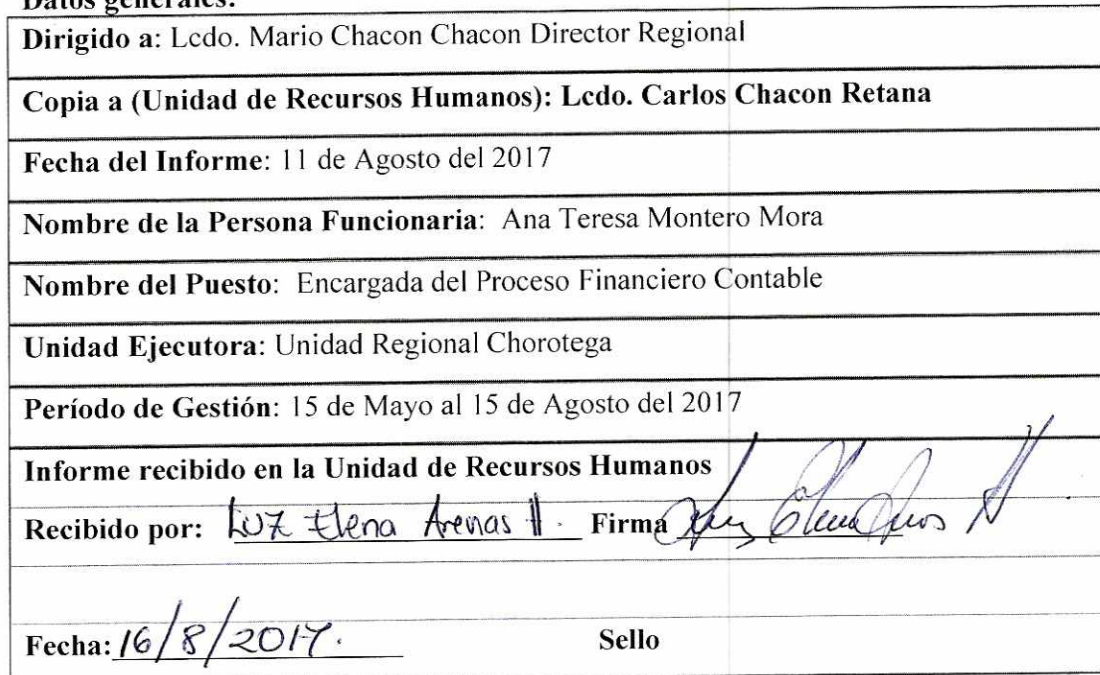 Datos generales:
Dirigido a: Lcdo. Mario Chacon Chacon Director Regional
Copia a (Unidad de Recursos Humanos): Lcdo. Carlos Chacon Retana
Fecha del Informe: 11 de Agosto del 2017
Nombre de la Persona Funcionaria: Ana Teresa Montero Mora
Nombre del Puesto: Encargada del Proceso Financiero Contable
Unidad Ejecutora: Unidad Regional Chorotega
Período de Gestión: 15 de Mayo al 15 de Agosto del 2017
Informe recibido en la Unidad de Recursos Humanos
Recibido por: Luz Elena Arenas H. Firma
Fecha: 16/8/2017. Sello